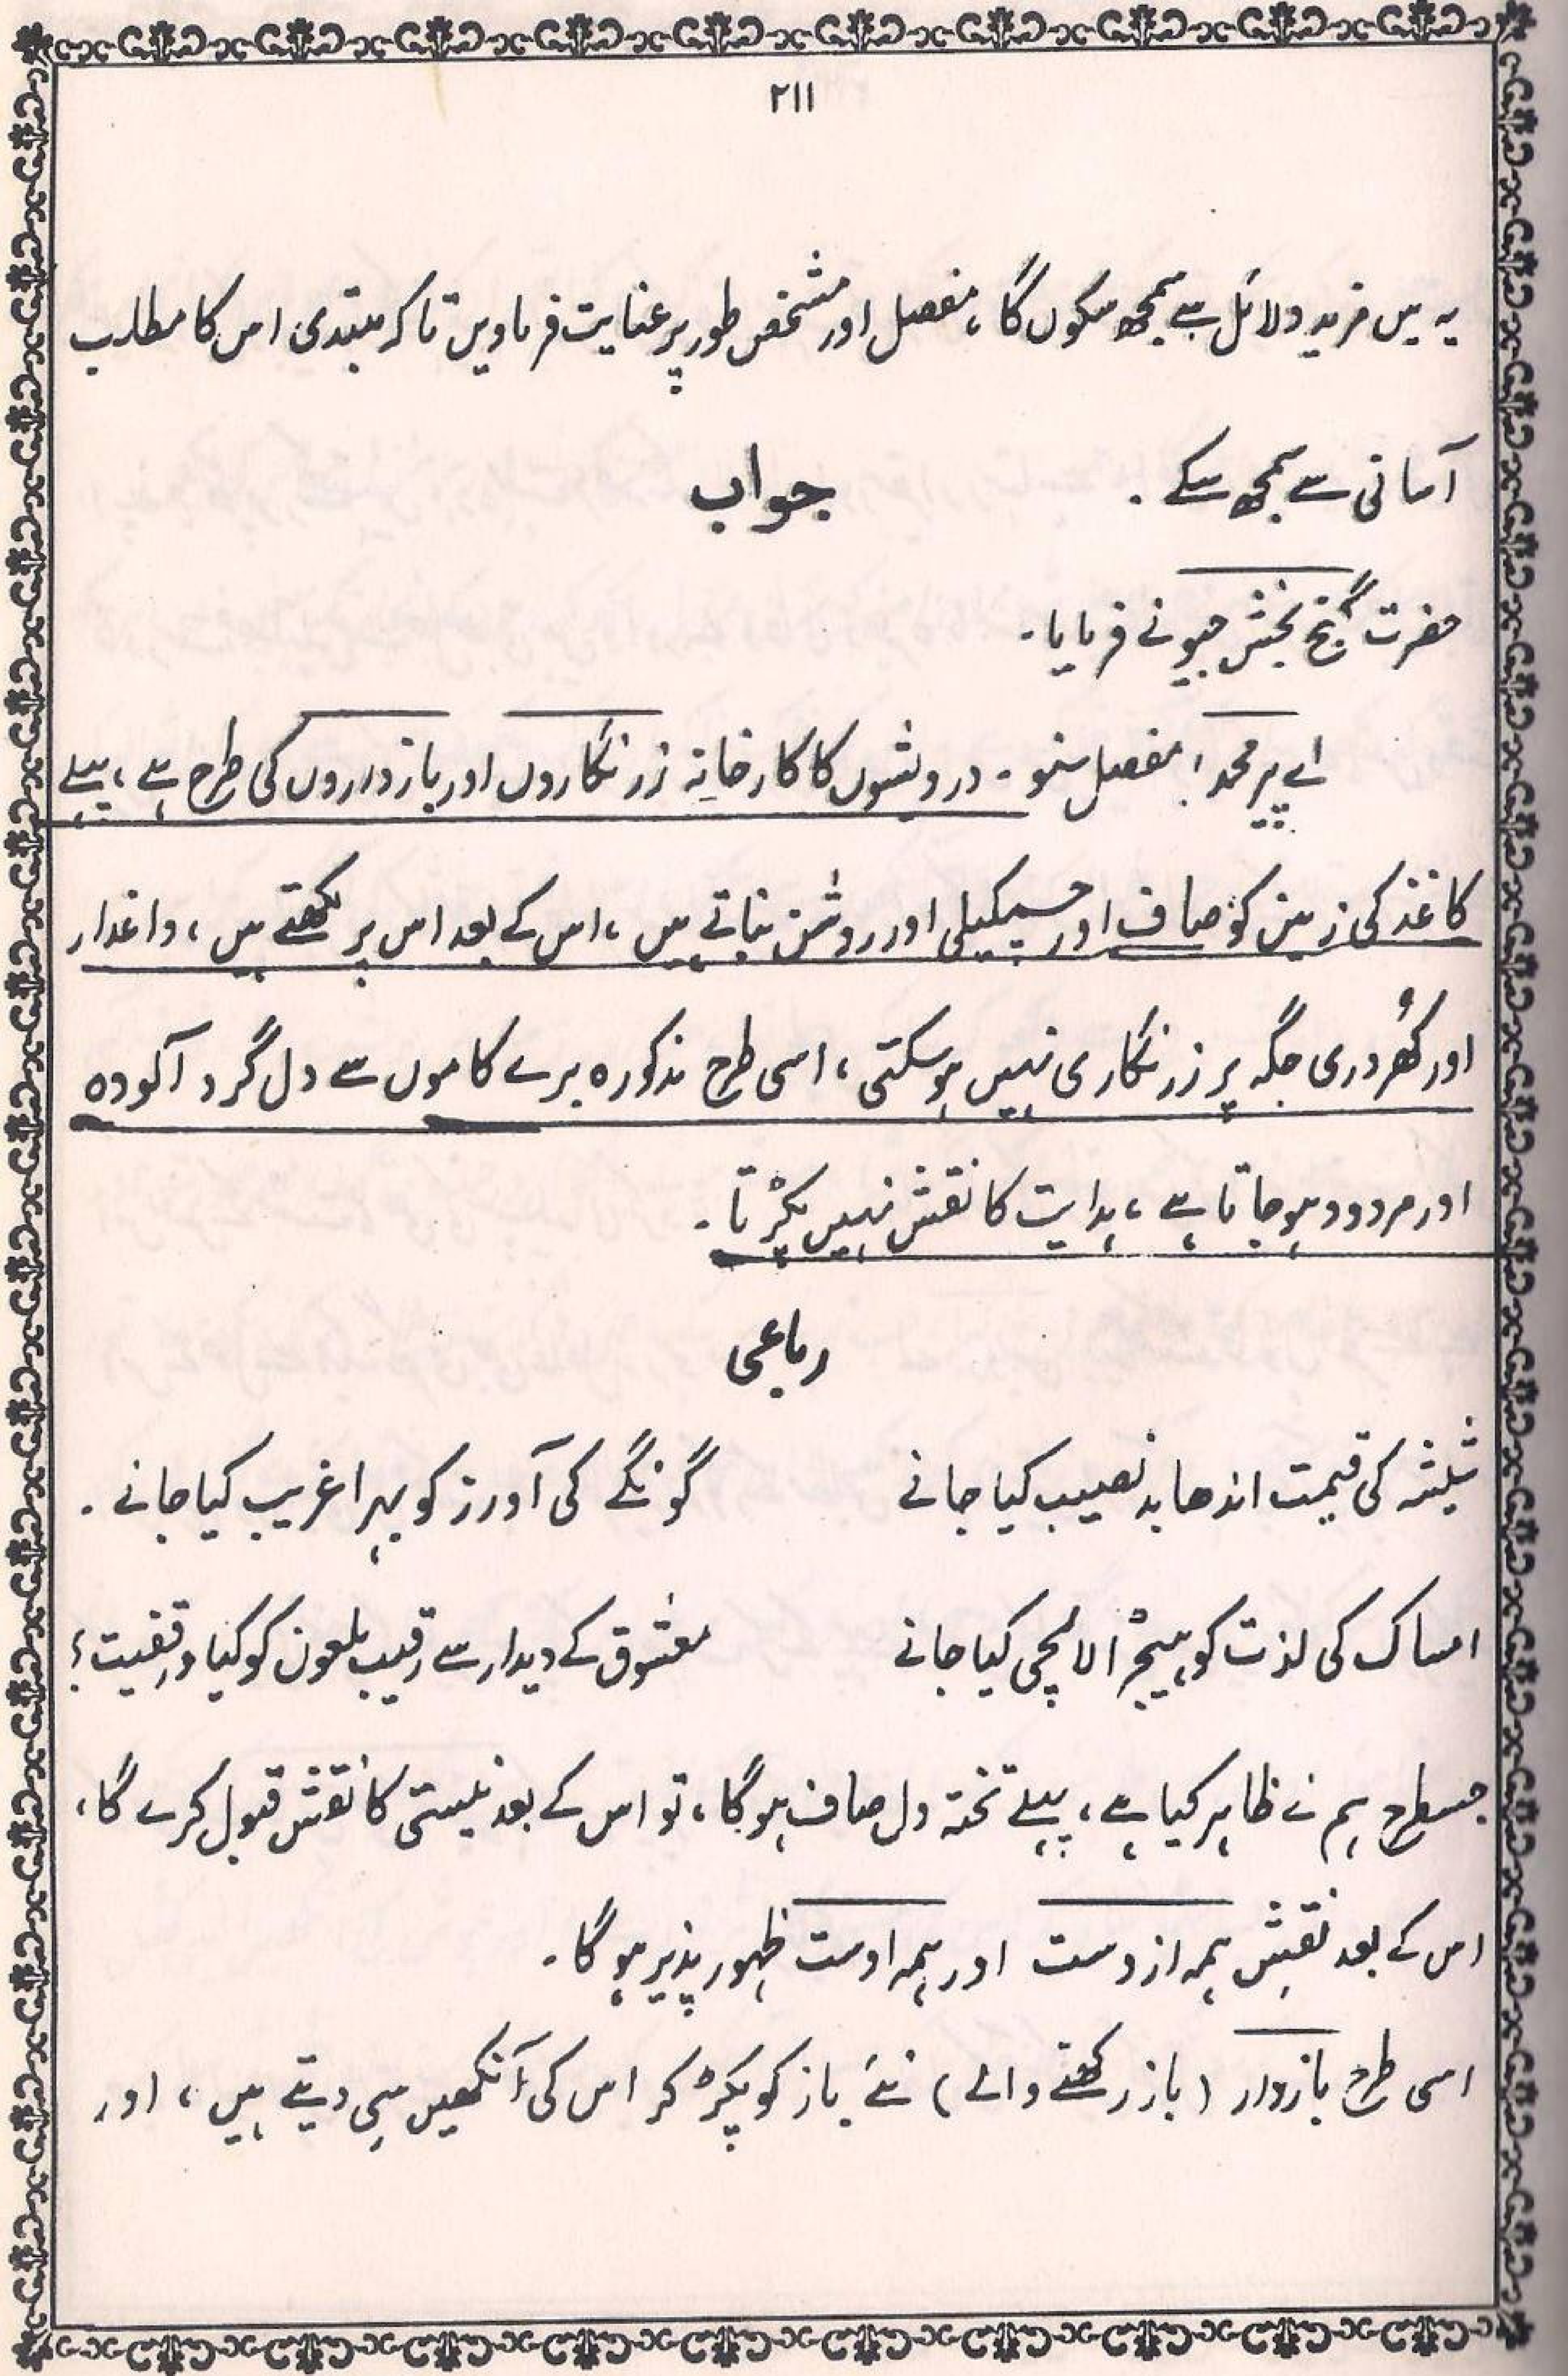 ۲۱۱
یہ میں مزید دلائل سے سمجھ سکوں گا، مفصل اور مشخص طور پر عنایت فرماویں تاکہ مبتدی اس کا مطلب
آسانی سے سمجھ سکے۔
جواب
حضرت گنج بخش جیو نے فرمایا۔
اے پیر محمد! مفصل سنو۔ درویشوں کا کارخانہ زرنگاروں اور بازداروں کی طرح ہے، پہلے
کاغذ کی زمین کو صاف اور چمکیلی اور روشن بناتے ہیں، اس کے بعد اس پر لکھتے ہیں، داغدار
اور کھُردری جگہ پر زرنگاری نہیں ہو سکتی، اسی طرح مذکورہ برے کاموں سے دل گرد آلودہ
اور مردود ہو جاتا ہے، ہدایت کا نقش نہیں پکڑتا۔
رباعی
شیشہ کی قیمت اندھا بدنصیب کیا جانے گونگے کی آورز کو بہرا غریب کیا جانے۔
امساک کی لذت کو ہیجڑا لالچی کیا جانے معشوق کے دیدار سے رقیب ملعون کو کیا وقفیت؛
جسطرح ہم نے ظاہر کیا ہے، پہلے تختہ دل صاف ہو گا، تو اس کے بعد نیستی کا نقش قبول کرے گا،
اس کے بعد نقشِ ہمہ ازوست اور ہمہ اوست ظہور پذیر ہو گا۔
اسی طرح بازدار (باز رکھنے والے) نئے باز کو پکڑ کر اس کی آنکھیں سِی دیتے ہیں، اور